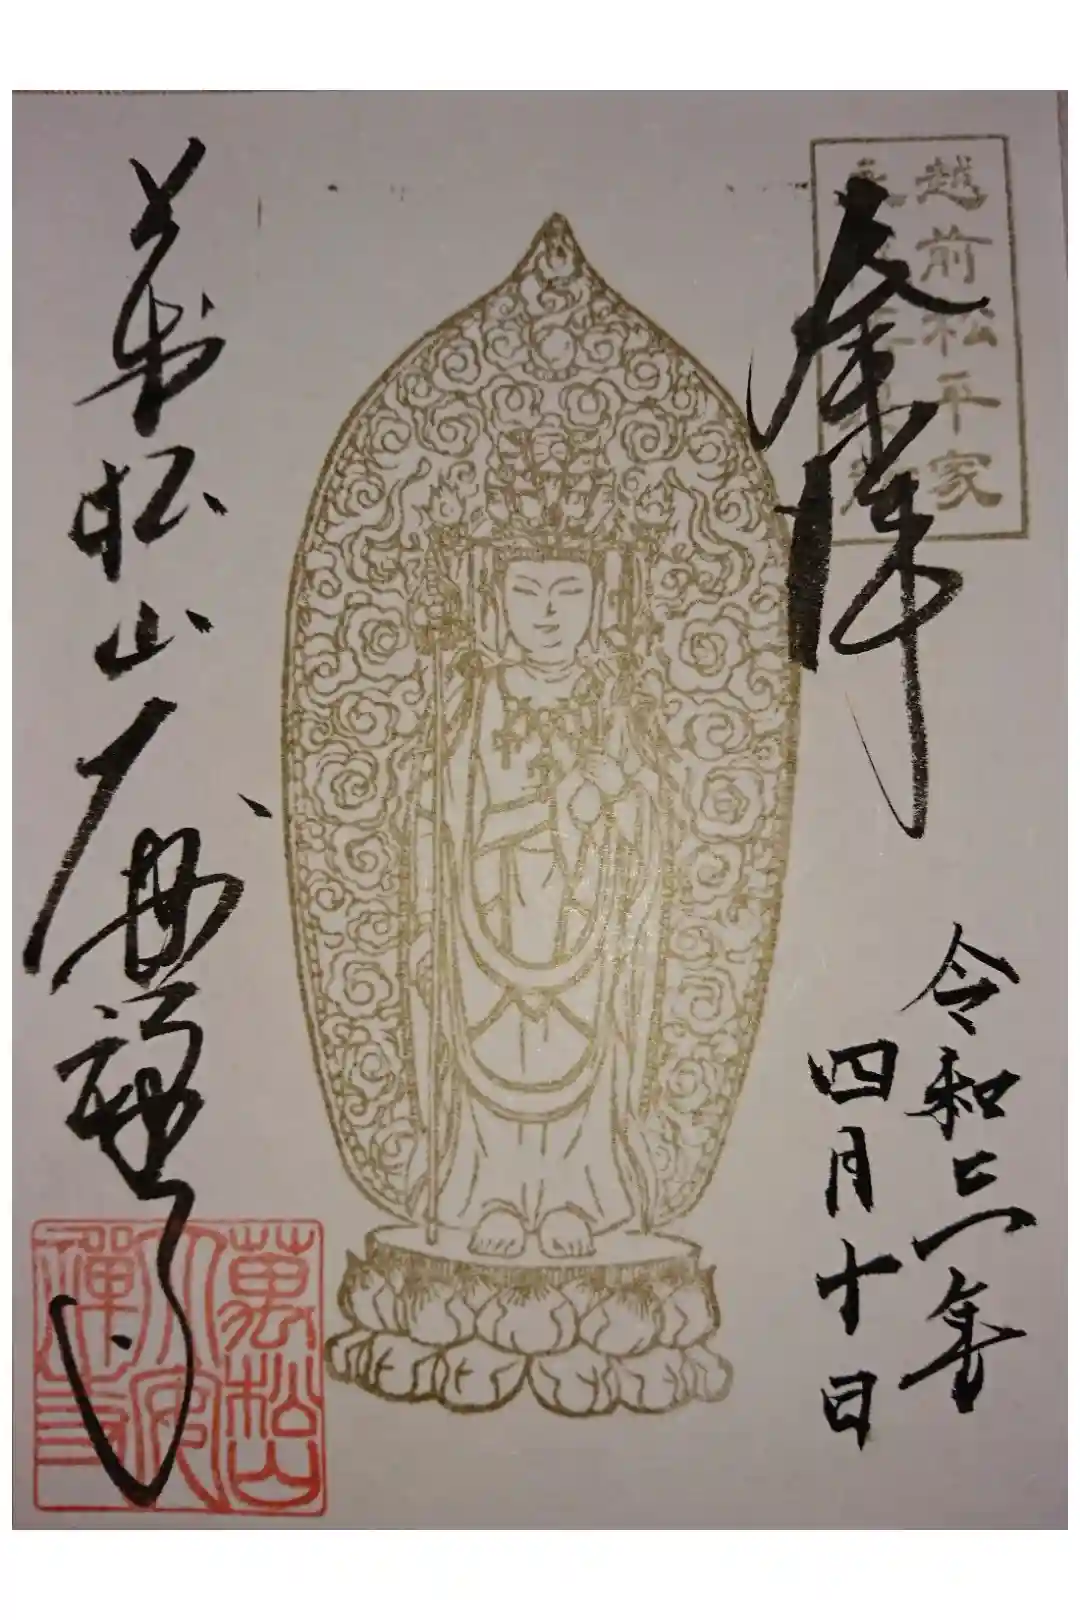 越前松平家
奉拝
令和三年
四月十日
萬松山大安禅寺
萬松山
大安
禪寺